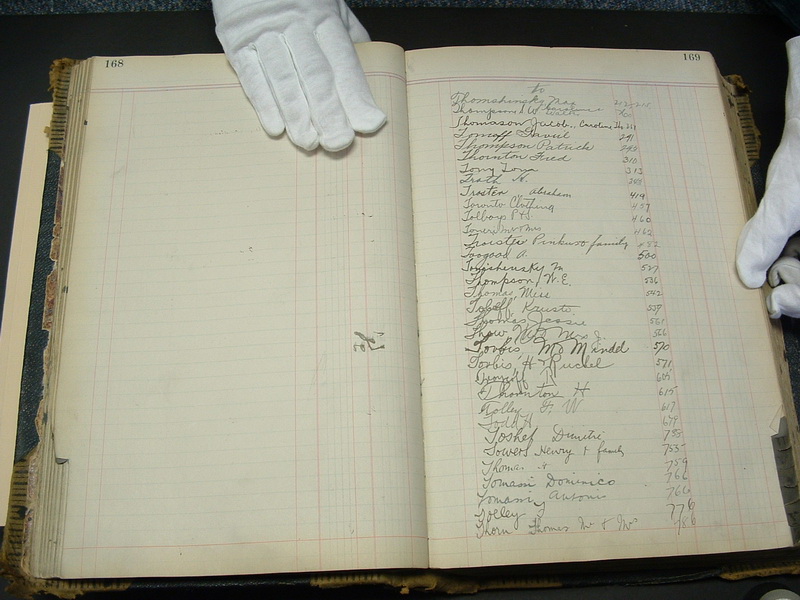 168
169
to
Thomshinsky Max
Thompson
Thomason Jacob, Caroline
Tomoff David 241
Thompson Patrick 295
Thornton Fred 310
Tony Tova 313
Trath H.
Trosten Abraham 419
Toronto Clothing 457
Tolboys 460
462
Thorsten family
Toogood A. 500
Tomshinsky M 527
Thompson, W.E. 536
Thomas, Miss 542
Toheff, Kristo 559
Thomas Jessie 561
566
Torbis, Mr Mindel 570
Torbis H & Ruchel 571
Thornton H 615
Tolley G. W 617
Todd H 679
Toshef Dimitri
Towers Henry & family 755
Thomas 759
Tomassi Dominico 766
Tomassi Antonio 766
Tolley 776
Thorn Thomas Mr & Mrs 786